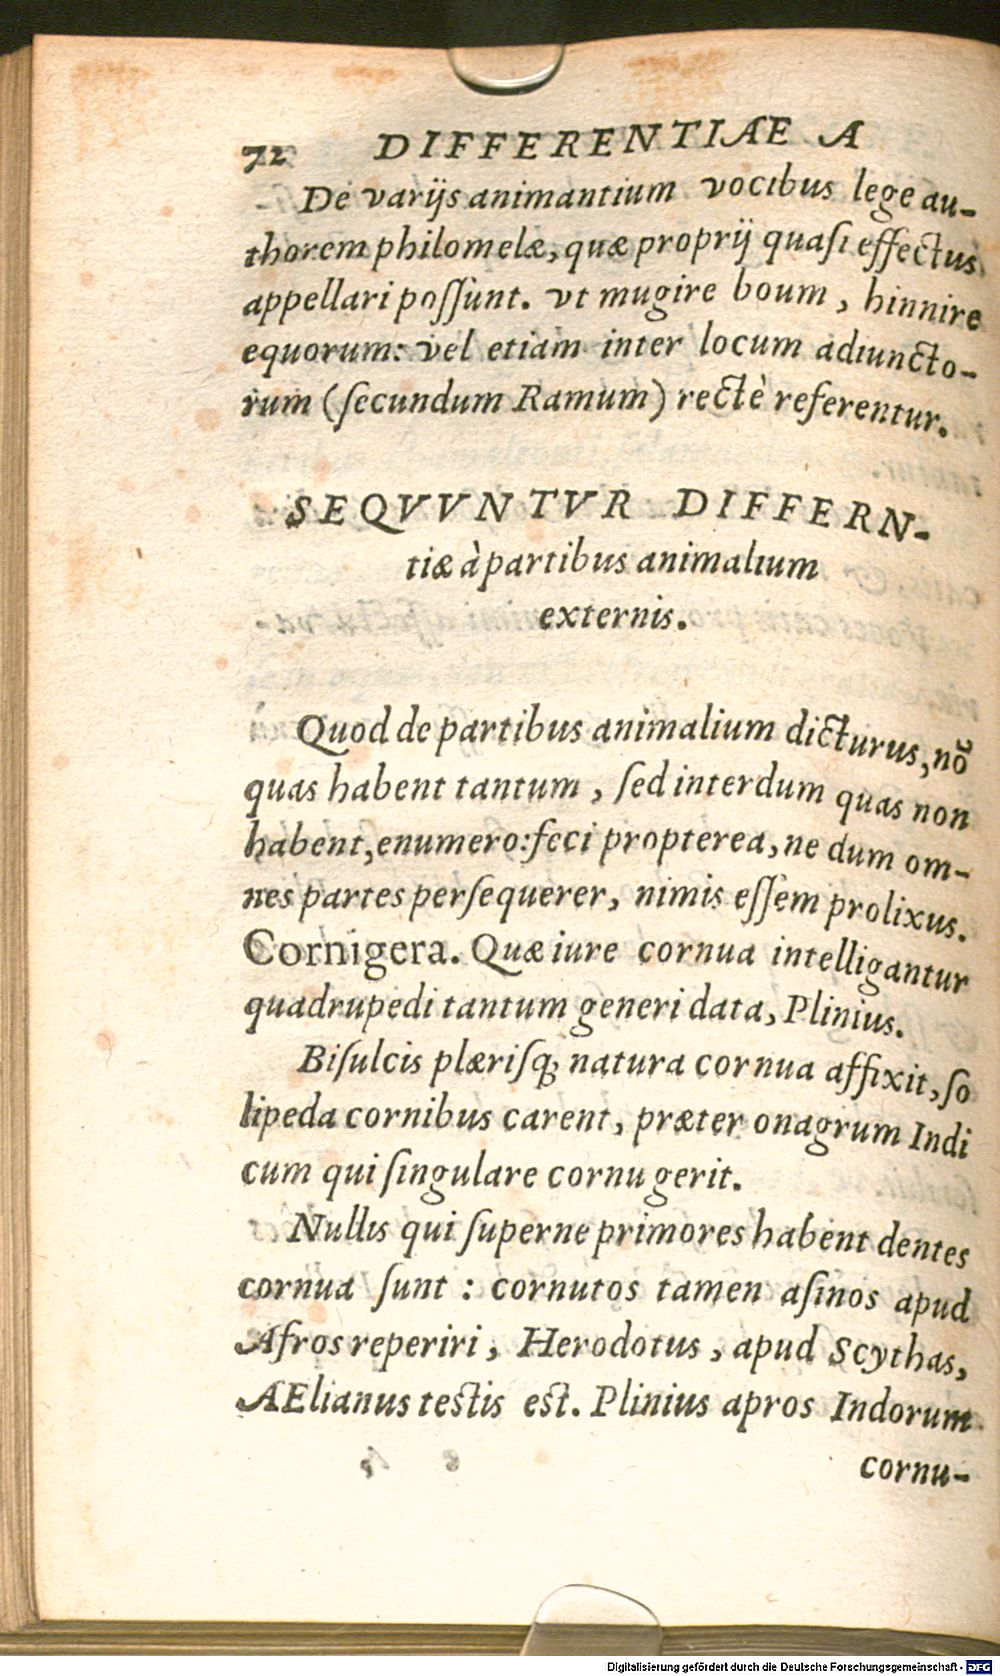 72 DIFFERENTIÆ A
De varijs animantium vocibus lege au-
thorem philomelæ, quæ proprij quaſi effectus
appellari poſſunt. vt mugire boum, hinnire
equorum: vel etiam inter locum adiuncto-
rum (ſecundum Ramum) rectè referentur.
SEQVVNTVR DIFFERN-
tiæ à partibus animalium
externis.
Quod de partibus animalium dicturus, nõ
quas habent tantum, ſed interdum quas non
habent, enumero: feci propterea, ne dum om-
nes partes perſequerer, nimis eſſem prolixus.
Cornigera. Quæ iure cornua intelligantur
quadrupedi tantum generi data, Plinius.
Biſulcis plæriſq; natura cornua affixit, ſo
lipeda cornibus carent, præter onagrum Indi
cum qui ſingulare cornu gerit.
Nullis qui ſuperne primores habent dentes
cornua ſunt: cornutos tamen aſinos apud
Afros reperiri, Herodotus, apud Scythas,
AElianus testis est. Plinius apros Indorum
cornu-
Digitalisierung gefördert durch die Deutsche Forschungsgemeinschaft - DFG